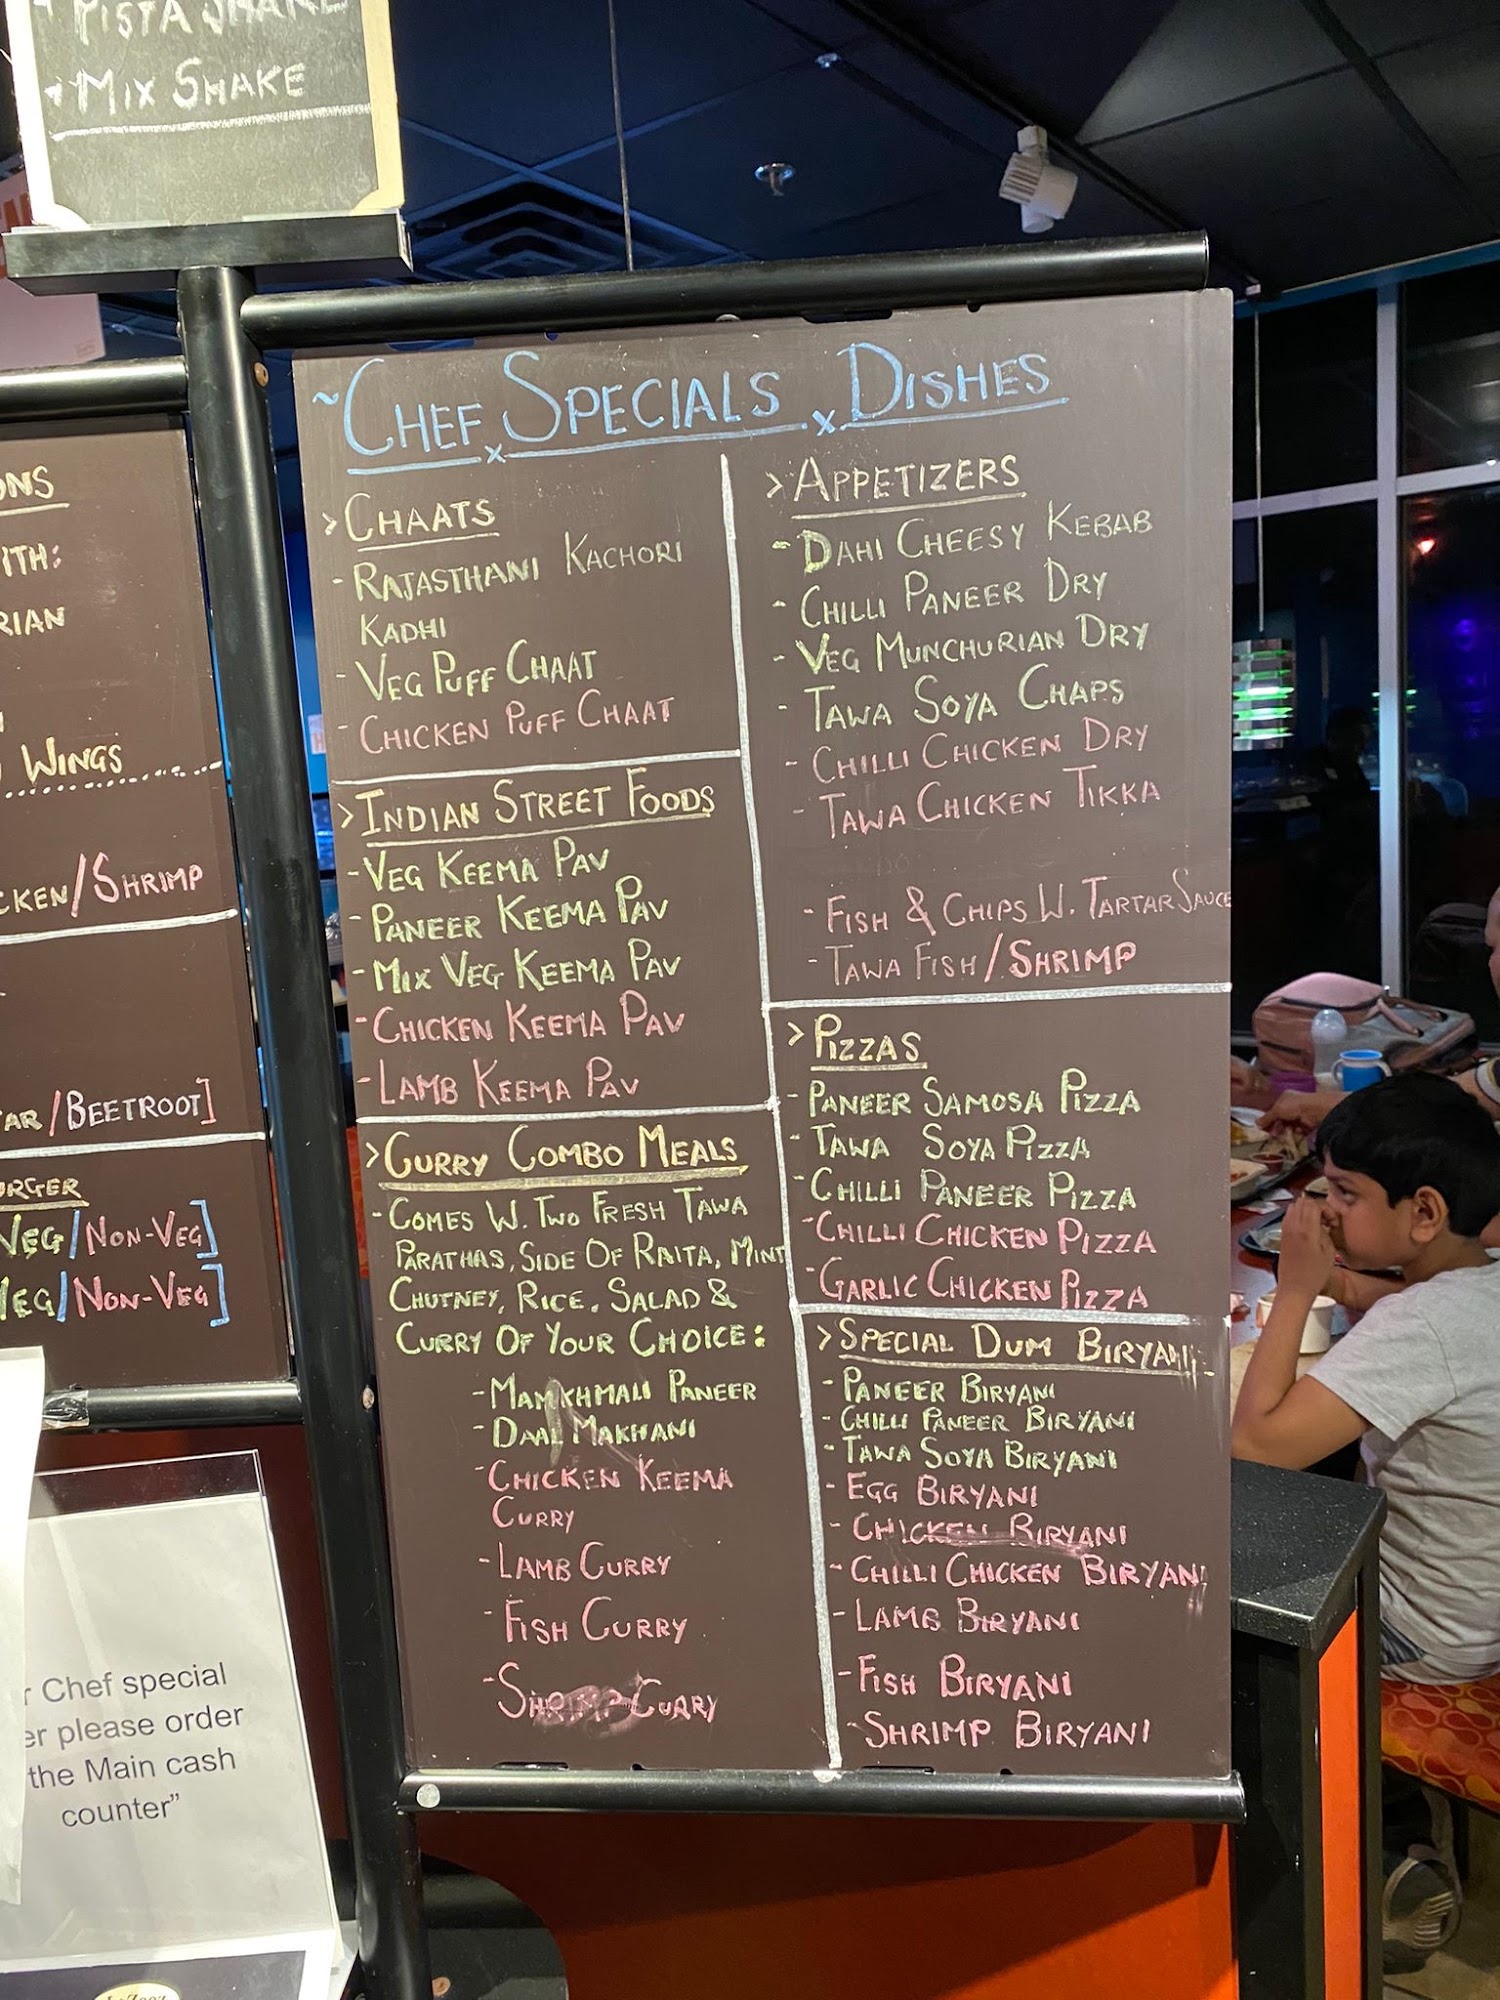 PISTA SHAKE
- MIX SHAKE
ONS
ITH:
RIAN
WINGS
CKEN/SHRIMP
AR/BEETROOT]
URGER
VEG/NON-VEG]
VEG/NON-VEG]
r Chef special
er please order
the Main cash
counter”
~CHEF SPECIALS DISHES
> CHAATS
- RAJASTHANI KACHORI
KADHI
- VEG PUFF CHAAT
- CHICKEN PUFF CHAAT
> INDIAN STREET FOODS
- VEG KEEMA PAV
- PANEER KEEMA PAV
- MIX VEG KEEMA PAV
- CHICKEN KEEMA PAV
- LAMB KEEMA PAV
> CURRY COMBO MEALS
- COMES W. TWO FRESH TAWA
PARATHAS, SIDE OF RAITA, MINT
CHUTNEY, RICE, SALAD &
CURRY OF YOUR CHOICE:
- MAMKHMALI PANEER
- DAAL MAKHANI
- CHICKEN KEEMA
CURRY
- LAMB CURRY
- FISH CURRY
- SHRIMP CURRY
> APPETIZERS
- DAHI CHEESY KEBAB
- CHILLI PANEER DRY
- VEG MUNCHURIAN DRY
- TAWA SOYA CHAPS
- CHILLI CHICKEN DRY
- TAWA CHICKEN TIKKA
- FISH & CHIPS W. TARTAR SAUCE
- TAWA FISH/SHRIMP
> PIZZAS
- PANEER SAMOSA PIZZA
- TAWA SOYA PIZZA
- CHILLI PANEER PIZZA
- CHILLI CHICKEN PIZZA
- GARLIC CHICKEN PIZZA
> SPECIAL DUM BIRYANI
- PANEER BIRYANI
- CHILLI PANEER BIRYANI
- TAWA SOYA BIRYANI
- EGG BIRYANI
- CHICKEN BIRYANI
- CHILLI CHICKEN BIRYANI
- LAMB BIRYANI
- FISH BIRYANI
- SHRIMP BIRYANI